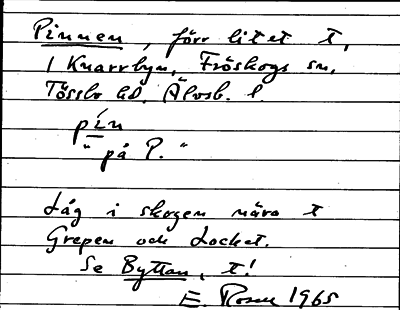 Pinnen, förr litet t,
i Knarrbyn, Fröskogs sn,
Tössbo hd. Älvsb. l.
pín
"på P."
Låg i skogen nära t
Grepen och Locket.
Se Byttan, t!
E. Rosen 1965